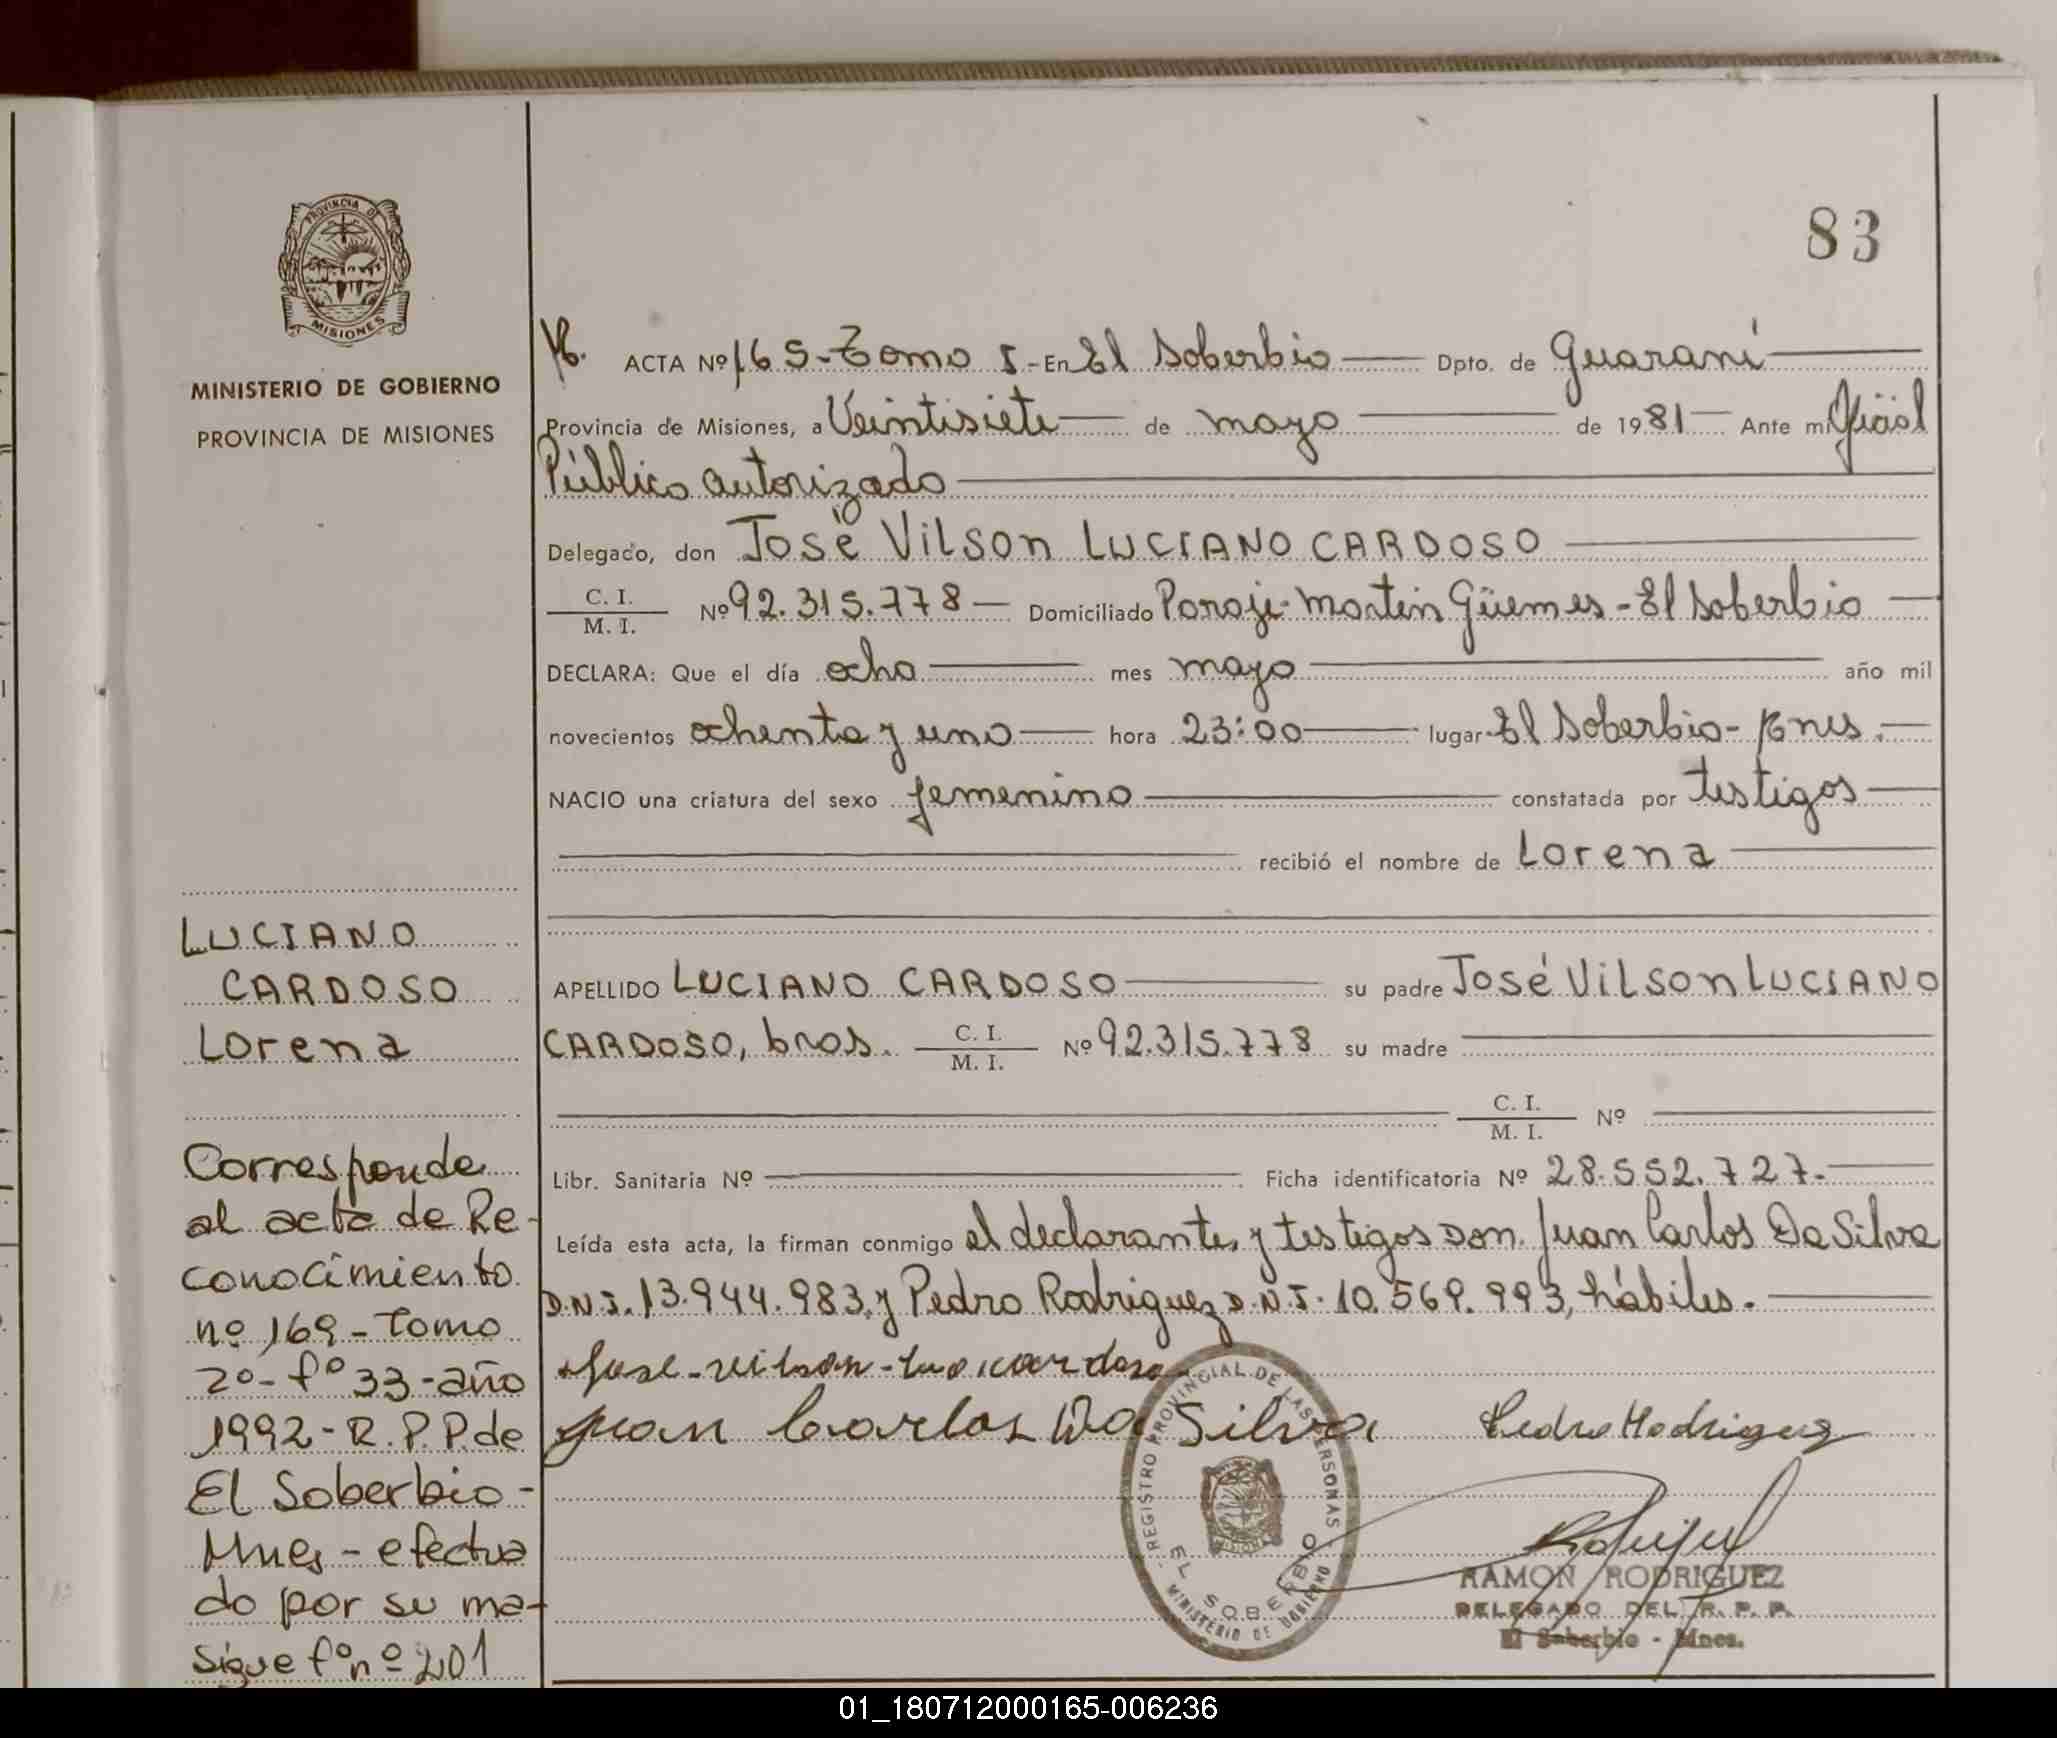 PROVINCIA DE
MISIONES
MINISTERIO DE GOBIERNO
PROVINCIA DE MISIONES
LUCIANO
CARDOSO
Lorena
Corresponde
al acta de Re-
conocimiento
nº 169 - Tomo
2º - fº 33 - año
1992 - R.P.P. de
El Soberbio -
Mnes - efectua
do por su ma-
Sigue fº nº 201
83
ACTA Nº 165 - Tomo I - En El Soberbio Dpto. de Guaraní
Provincia de Misiones, a Veintisiete de mayo de 1981 Ante mi Oficial
Público autorizado
Delegado, don José Vilson LUCIANO CARDOSO
C. I. / M. I. Nº 92.315.778 - Domiciliado Paraje Martín Güemes - El Soberbio
DECLARA: Que el día ocho mes mayo año mil
novecientos ochenta y uno hora 23:00 lugar El Soberbio - Mnes.
NACIO una criatura del sexo femenino constatada por testigos
recibió el nombre de Lorena
APELLIDO LUCIANO CARDOSO su padre José Vilson LUCIANO
CARDOSO, bras. C. I. / M. I. Nº 92.315.778 su madre
C. I. / M. I. Nº
Libr. Sanitaria Nº Ficha identificatoria Nº 28.552.727.
Leída esta acta, la firman conmigo el declarante, y testigos Don. Juan Carlos Da Silva
D.N.I. 13.944.983, y Pedro Rodriguez D.N.I. 10.569.993, hábiles.
Juan Carlos Da Silva Pedro Rodriguez
REGISTRO PROVINCIAL DE LAS PERSONAS
EL SOBERBIO
MINISTERIO DE GOBIERNO
RAMON RODRIGUEZ
DELEGADO DEL R. P. P.
El Soberbio - Mnes.
01_180712000165-006236